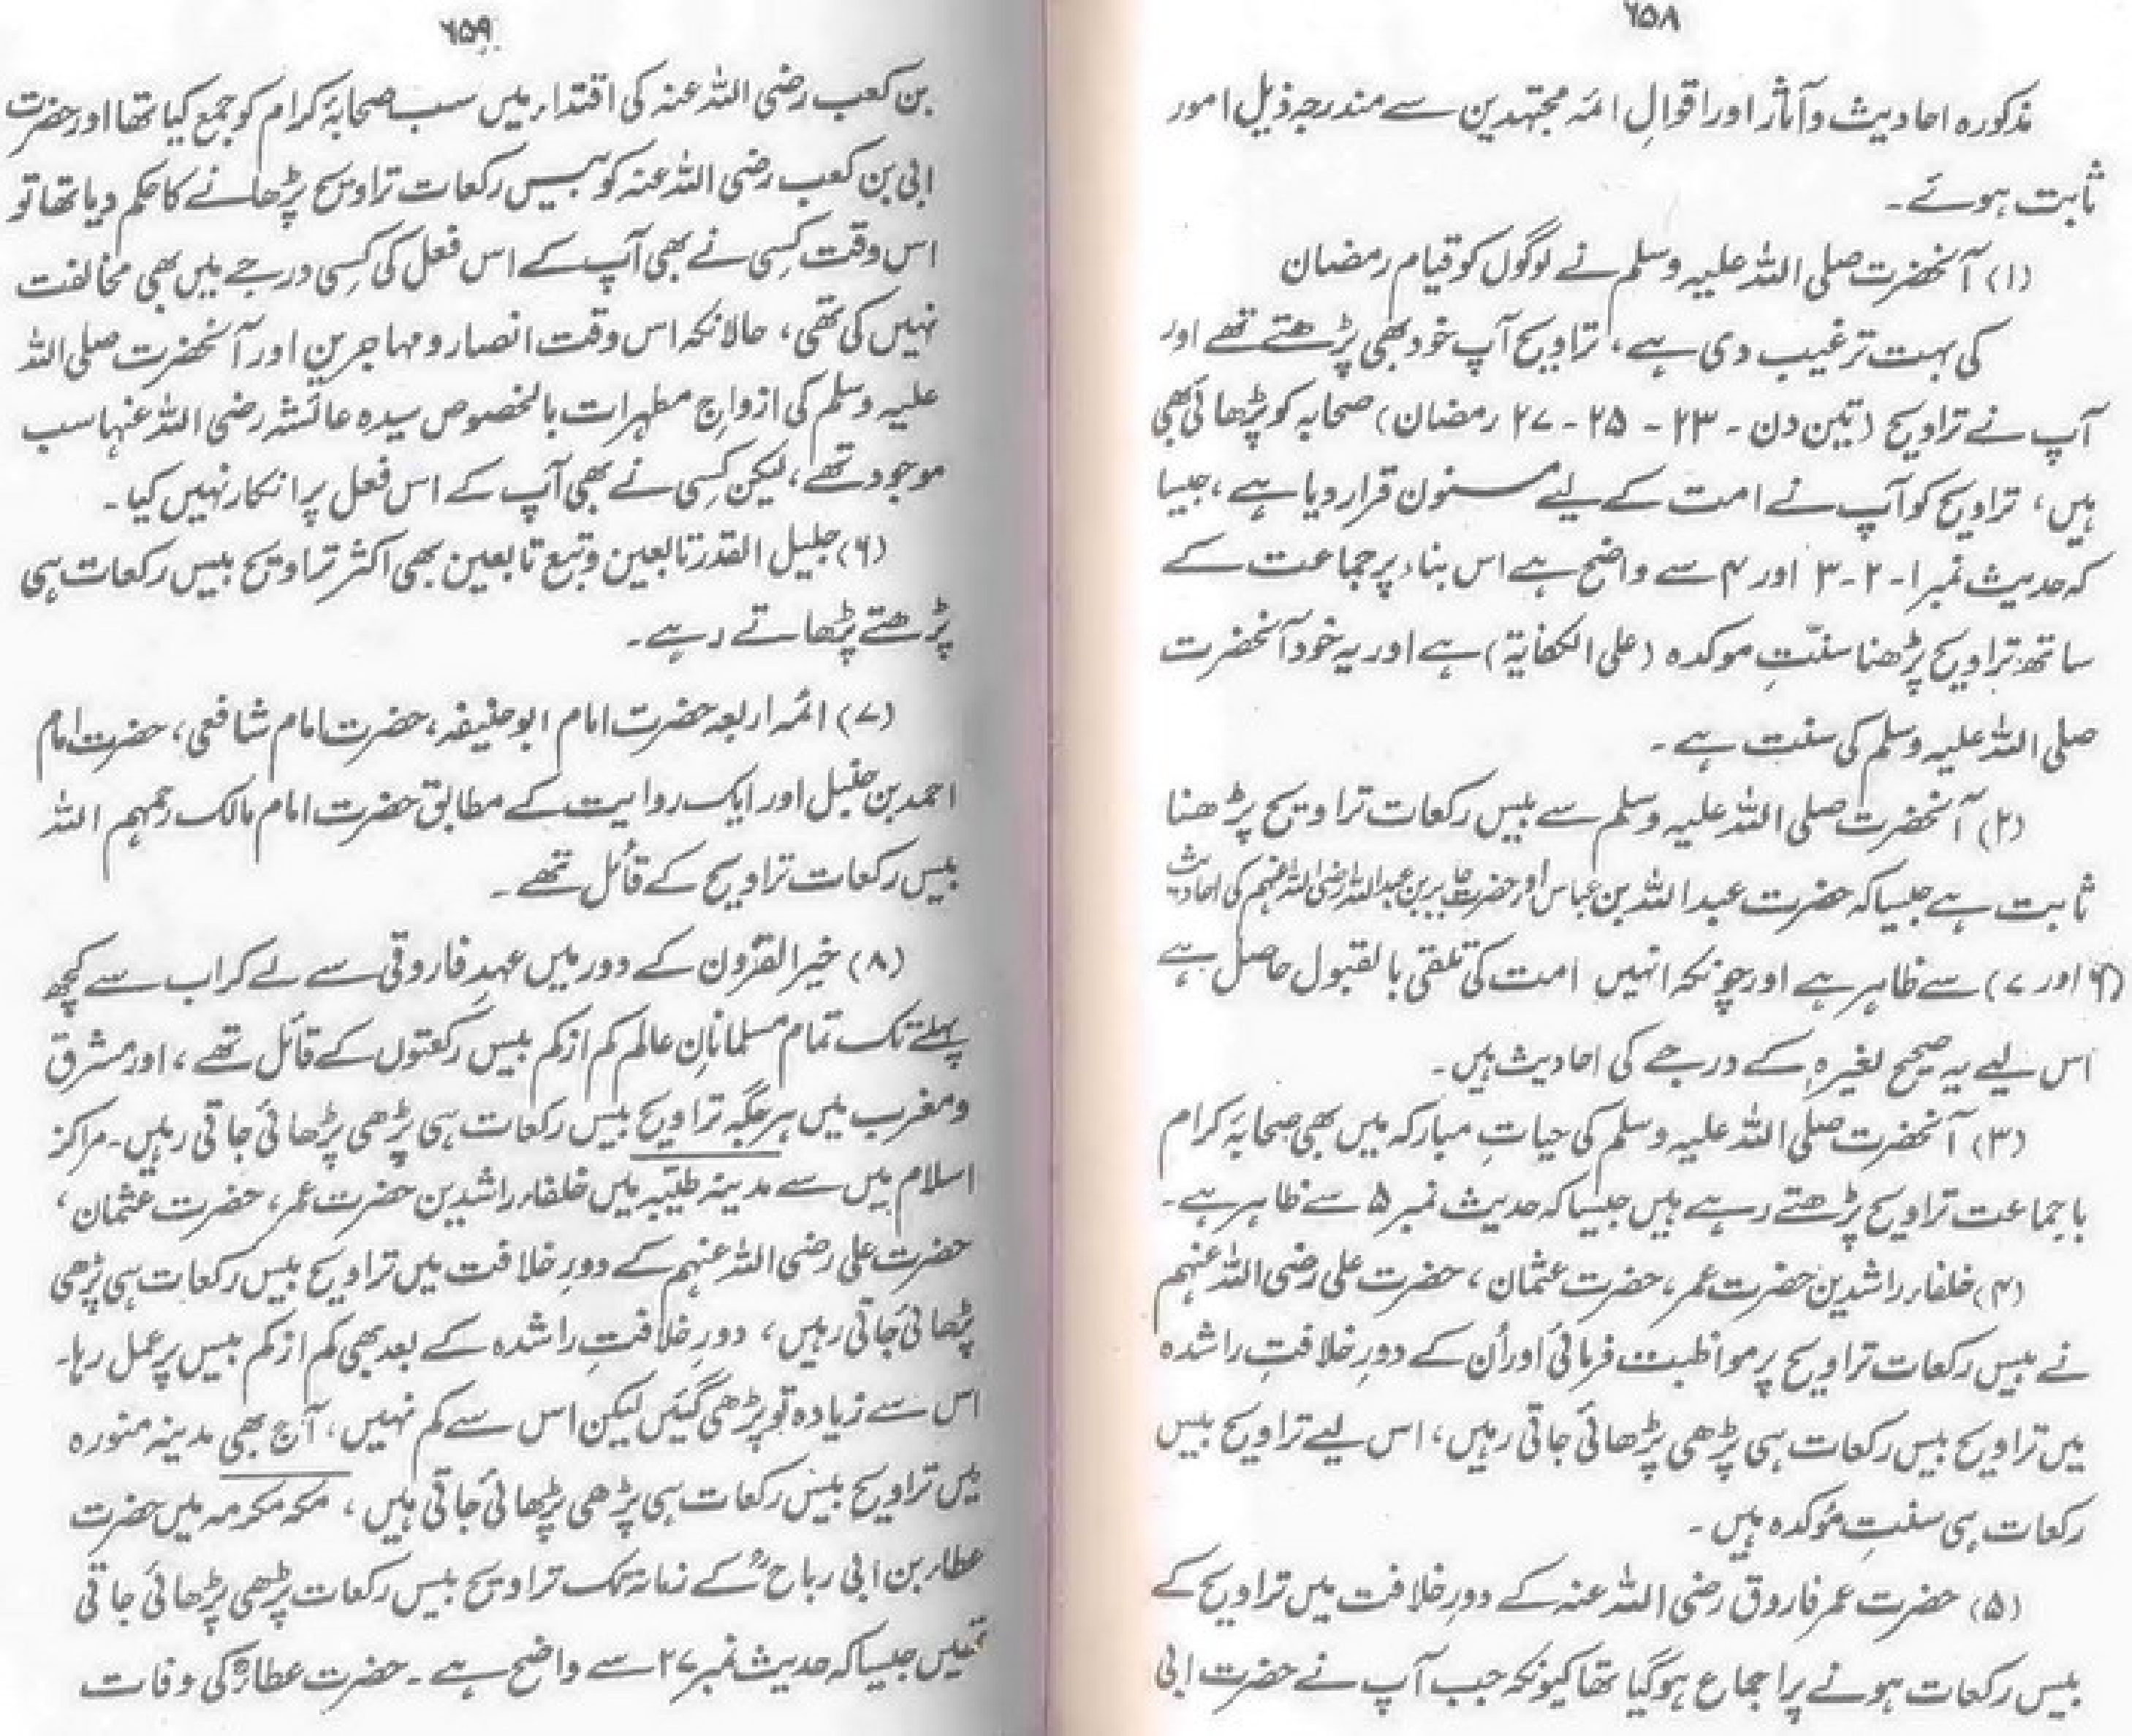 ۶۵۸
مذکورہ احادیث وآثار اور اقوالِ ائمہ مجتہدین سے مندرجہ ذیل امور
ثابت ہوئے۔
(۱) آنحضرت صلی اللہ علیہ وسلم نے لوگوں کو قیام رمضان
کی بہت ترغیب دی ہے، تراویح آپ خود بھی پڑھتے تھے اور
آپ نے تراویح (تین دن ۔ ۲۳ ۔ ۲۵ ۔ ۲۷ رمضان) صحابہ کو پڑھائی بھی
ہیں، تراویح کو آپ نے امت کے لیے مسنون قرار دیا ہے، جیسا
کہ حدیث نمبر ۱۔ ۲۔ ۳ اور ۴ سے واضح ہے اس بناء پر جماعت کے
ساتھ تراویح پڑھنا سنّتِ موکدہ (علی الکفایۃ) ہے اور یہ خود آنحضرت
صلی اللہ علیہ وسلم کی سنت ہے۔
(۲) آنحضرت صلی اللہ علیہ وسلم سے بیس رکعات تراویح پڑھنا
ثابت ہے جیسا کہ حضرت عبداللہ بن عباس اور حضرت جابر بن عبداللہ رضی اللہ عنہم کی احادیث
(۶ اور ۷) سے ظاہر ہے اور چونکہ انہیں امت کی تلقی بالقبول حاصل ہے
اس لیے یہ صحیح لغیرہ کے درجے کی احادیث ہیں۔
(۳) آنحضرت صلی اللہ علیہ وسلم کی حیاتِ مبارکہ میں بھی صحابۂ کرام
باجماعت تراویح پڑھتے رہے ہیں جیسا کہ حدیث نمبر ۵ سے ظاہر ہے۔
(۴) خلفاء راشدین حضرت عمر، حضرت عثمان، حضرت علی رضی اللہ عنہم
نے بیس رکعات تراویح پر مواظبت فرمائی اور اُن کے دورِ خلافتِ راشدہ
میں تراویح بیس رکعات ہی پڑھی پڑھائی جاتی رہیں، اس لیے تراویح بیس
رکعات ہی سنتِ مؤکدہ ہیں۔
(۵) حضرت عمر فاروق رضی اللہ عنہ کے دورِ خلافت میں تراویح کے
بیس رکعات ہونے پر اجماع ہوگیا تھا کیونکہ جب آپ نے حضرت ابی
۶۵۹
بن کعب رضی اللہ عنہ کی اقتداء میں سب صحابۂ کرام کو جمع کیا تھا اور حضرت
ابی بن کعب رضی اللہ عنہ کو بیس رکعات تراویح پڑھانے کا حکم دیا تھا تو
اس وقت کسی نے بھی آپ کے اس فعل کی کسی درجے میں بھی مخالفت
نہیں کی تھی، حالانکہ اس وقت انصار و مہاجرین اور آنحضرت صلی اللہ
علیہ وسلم کی ازواجِ مطہرات بالخصوص سیدہ عائشہ رضی اللہ عنہا سب
موجود تھے، لیکن کسی نے بھی آپ کے اس فعل پر انکار نہیں کیا۔
(۶) جلیل القدر تابعین و تبع تابعین بھی اکثر تراویح بیس رکعات ہی
پڑھتے پڑھاتے رہے۔
(۷) ائمہ اربعہ حضرت امام ابو حنیفہ، حضرت امام شافعی، حضرت امام
احمد بن حنبل اور ایک روایت کے مطابق حضرت امام مالک رحمہم اللہ
بیس رکعات تراویح کے قائل تھے۔
(۸) خیر القرون کے دور میں عہدِ فاروقی سے لے کر اب سے کچھ
پہلے تک تمام مسلمانانِ عالم کم از کم بیس رکعتوں کے قائل تھے، اور مشرق
و مغرب میں ہر جگہ تراویح بیس رکعات ہی پڑھی پڑھائی جاتی رہیں۔ مراکز
اسلام میں سے مدینہ طیّبہ میں خلفاء راشدین حضرت عمر، حضرت عثمان،
حضرت علی رضی اللہ عنہم کے دورِ خلافت میں تراویح بیس رکعات ہی پڑھی
پڑھائی جاتی رہیں، دورِ خلافتِ راشدہ کے بعد بھی کم از کم بیس پر عمل رہا۔
اس سے زیادہ تو پڑھی گئیں لیکن اس سے کم نہیں، آج بھی مدینہ منورہ
میں تراویح بیس رکعات ہی پڑھی پڑھائی جاتی ہیں، مکہ مکرمہ میں حضرت
عطاء بن ابی رباحؒ کے زمانہ تک تراویح بیس رکعات پڑھی پڑھائی جاتی
تھیں جیسا کہ حدیث نمبر ۲۷ سے واضح ہے۔ حضرت عطاءؒ کی وفات